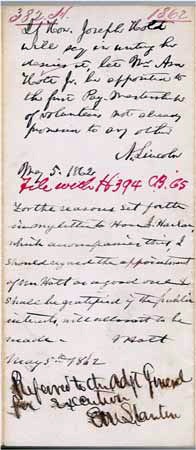 382. H. 1862
If Hon. Joseph Holt
will say in writing he
desires it, let Mr. Asa
Holt Jr. be appointed to
the first Pay-Mastership
of Volunteers not already
promised to any other
A. Lincoln
May 5. 1862
File with H 394 CB. 65
For the reasons set forth
in my letter to Hon. J. Harlan
which accompanies this, I
should regard the appointment
of Mr. Holt as a good one &
shall be gratified if the public
interests will allow it to be
made.
J Holt
May 5th 1862
Referred to the Adjt General
for execution
E M Stanton